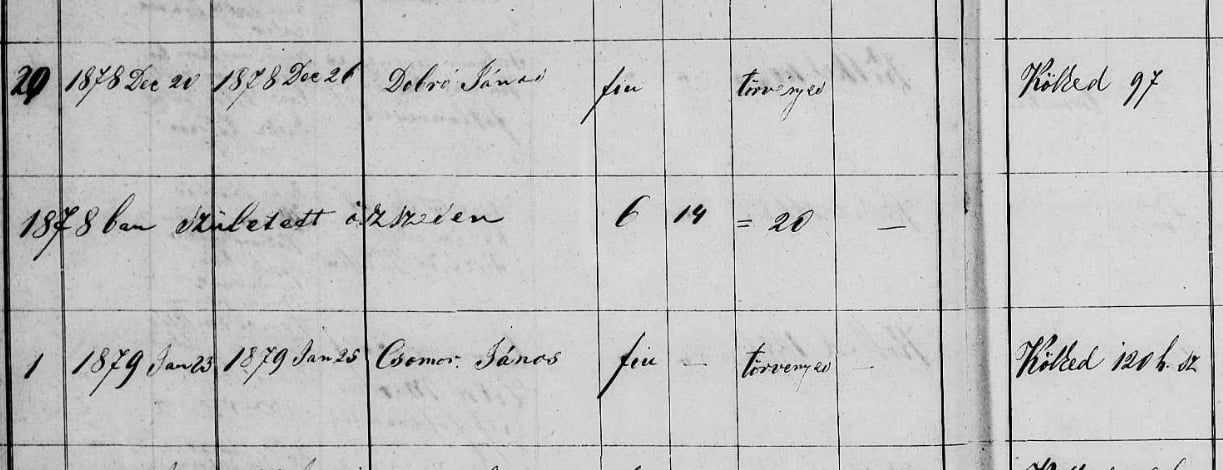 20 1878 Dec 20 1878 Dec 26 Dobró János fiu törvényes Kölked 97
1878 ban született öszszesen 6 14 = 20 —
1 1879 Jan 23 1879 Jan 25 Csomor János fiu — törvenyes — Kölked 120 h. sz